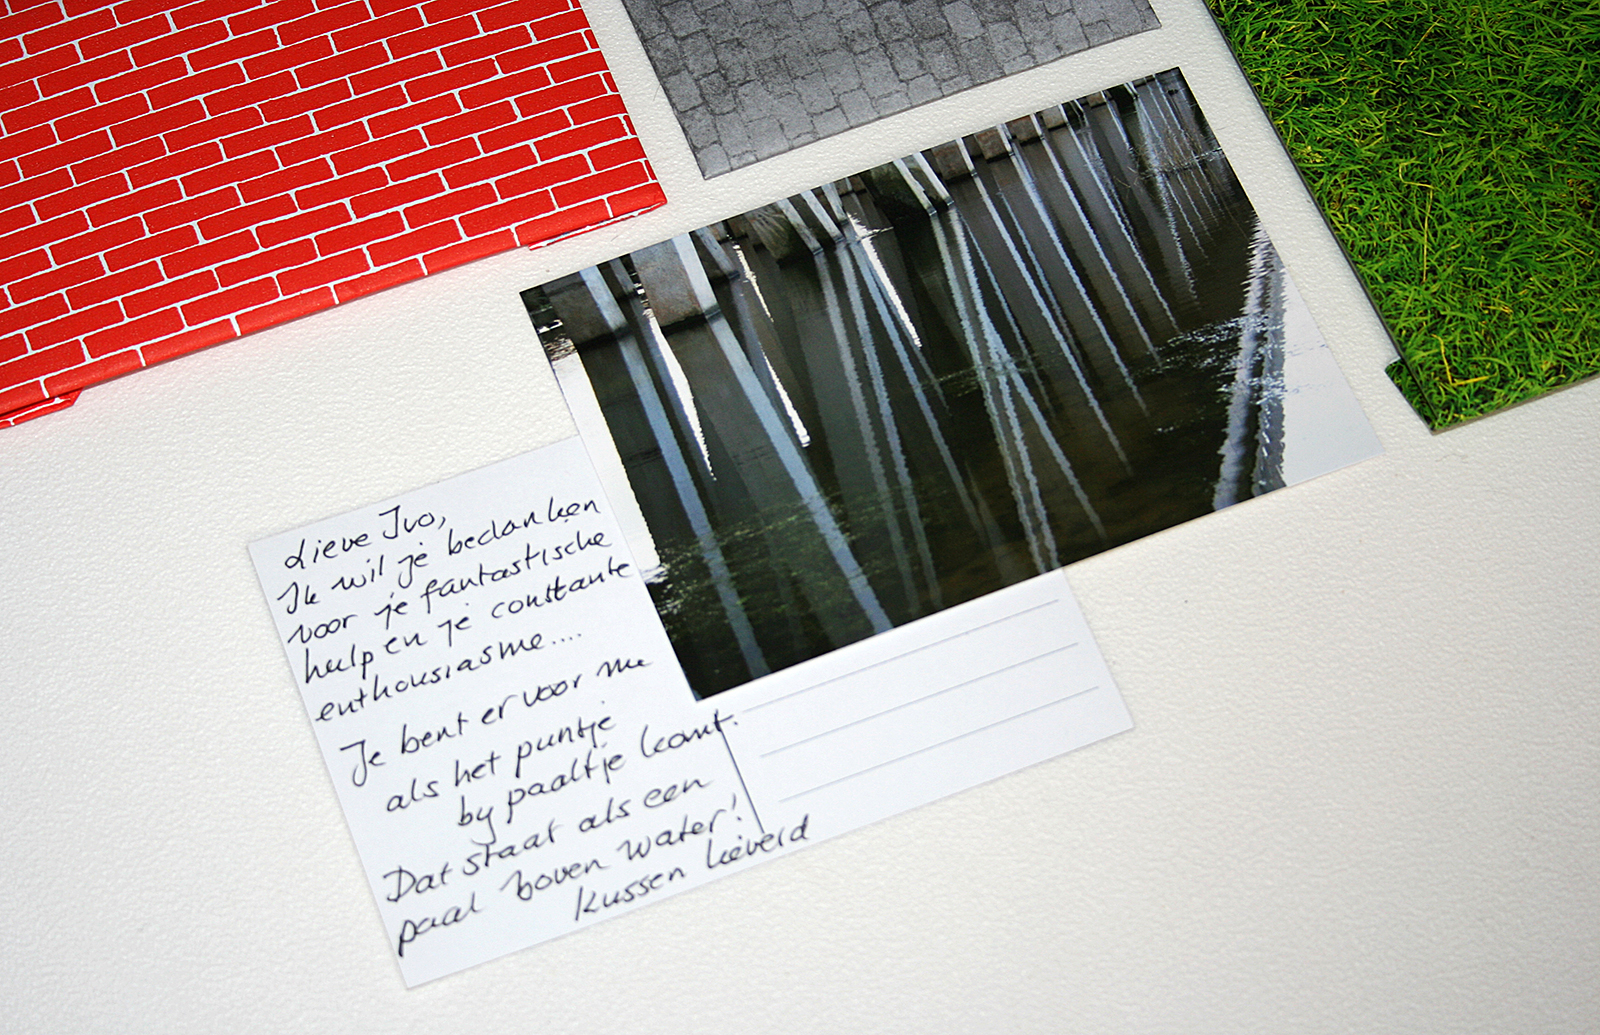 Lieve Ivo,
Ik wil je bedanken
voor je fantastische
hulp en je constante
enthousiasme....
Je bent er voor me
als het puntje
by paaltje komt.
Dat staat als een
paal boven water!
kussen lieverd